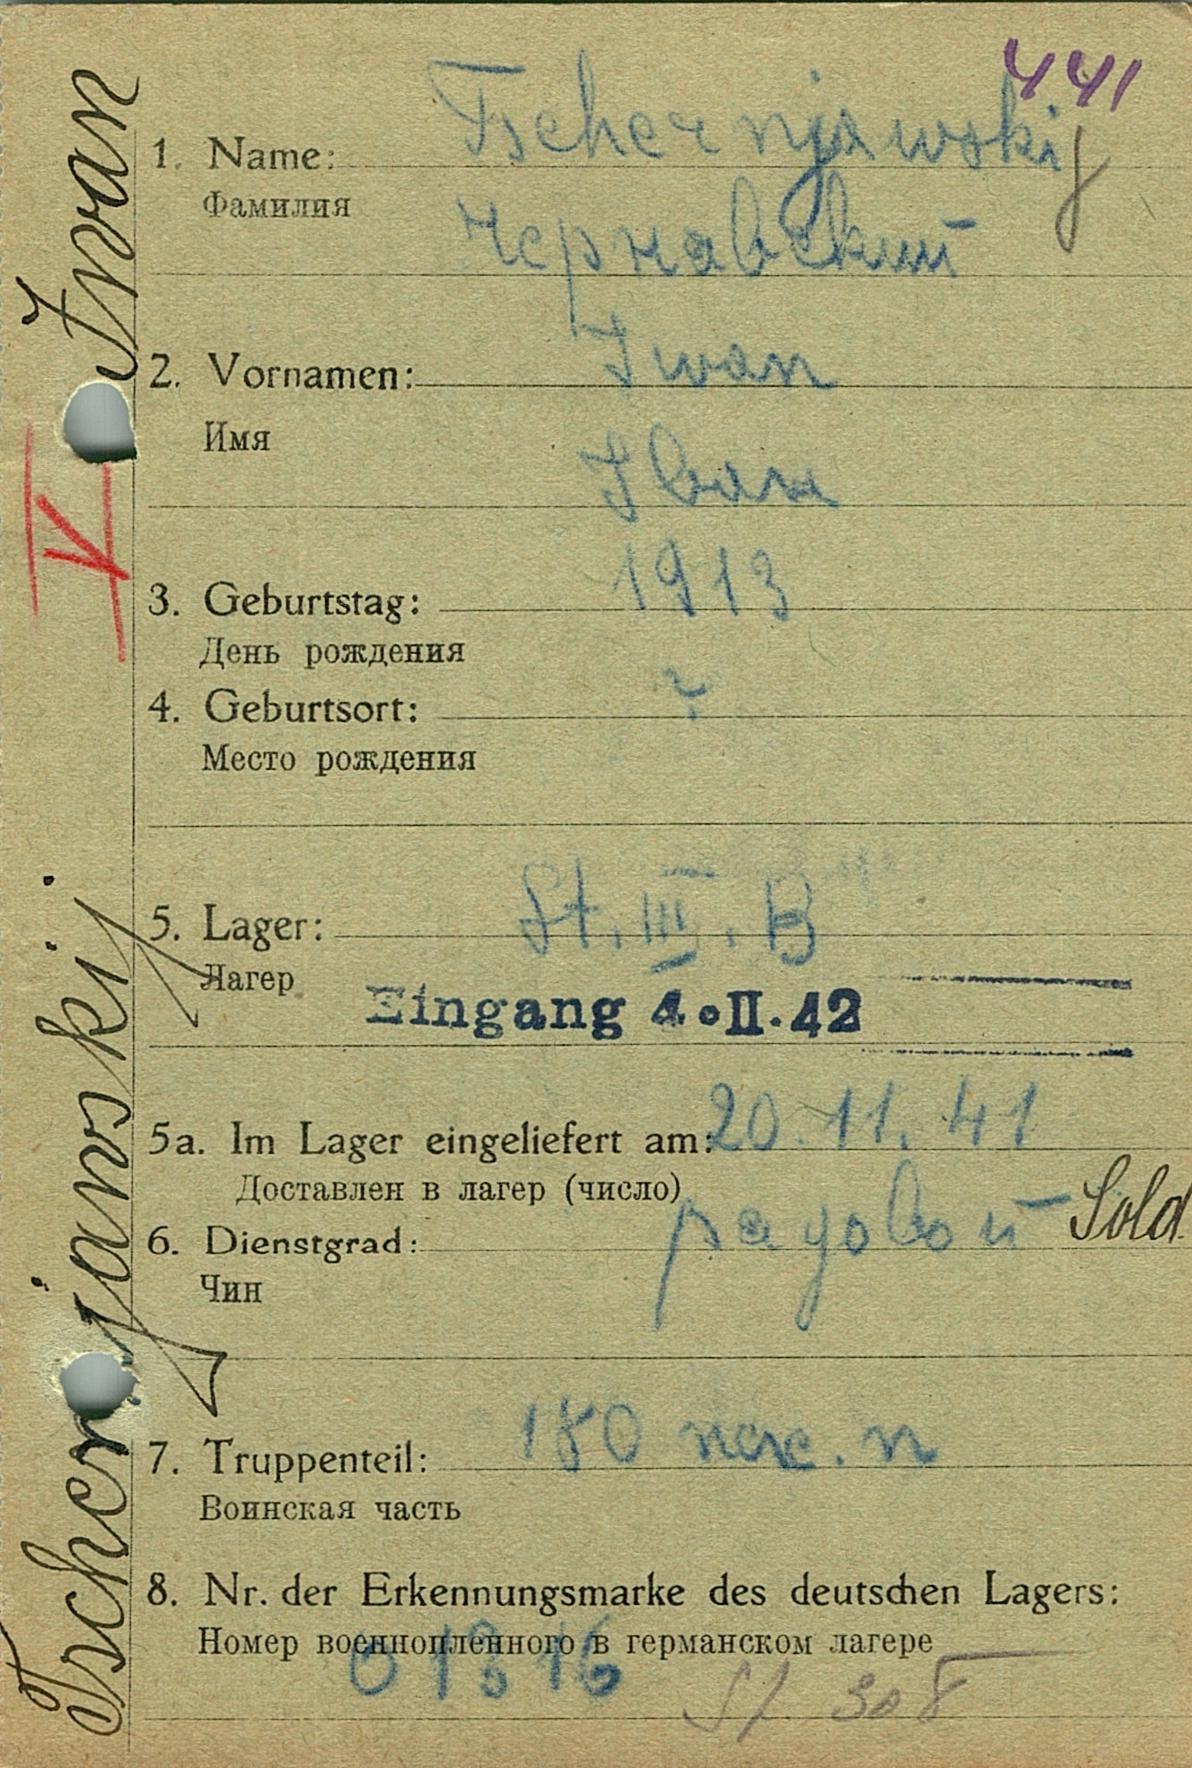 441
1. Name: Tschernjawskij
Фамилия Чернавский
2. Vornamen: Iwan
Имя Иван
3. Geburtstag: 1913
День рождения
4. Geburtsort: ?
Место рождения
5. Lager: St. III. B
Лагер
Eingang 4. II. 42
5a. Im Lager eingeliefert am: 20. 11. 41
Доставлен в лагер (число)
6. Dienstgrad: рядовой Sold.
Чин
7. Truppenteil: 180 пол. п
Воинская часть
8. Nr. der Erkennungsmarke des deutschen Lagers:
Номер военнопленного в германском лагере
St 308
Tschernjawskij Iwan
V